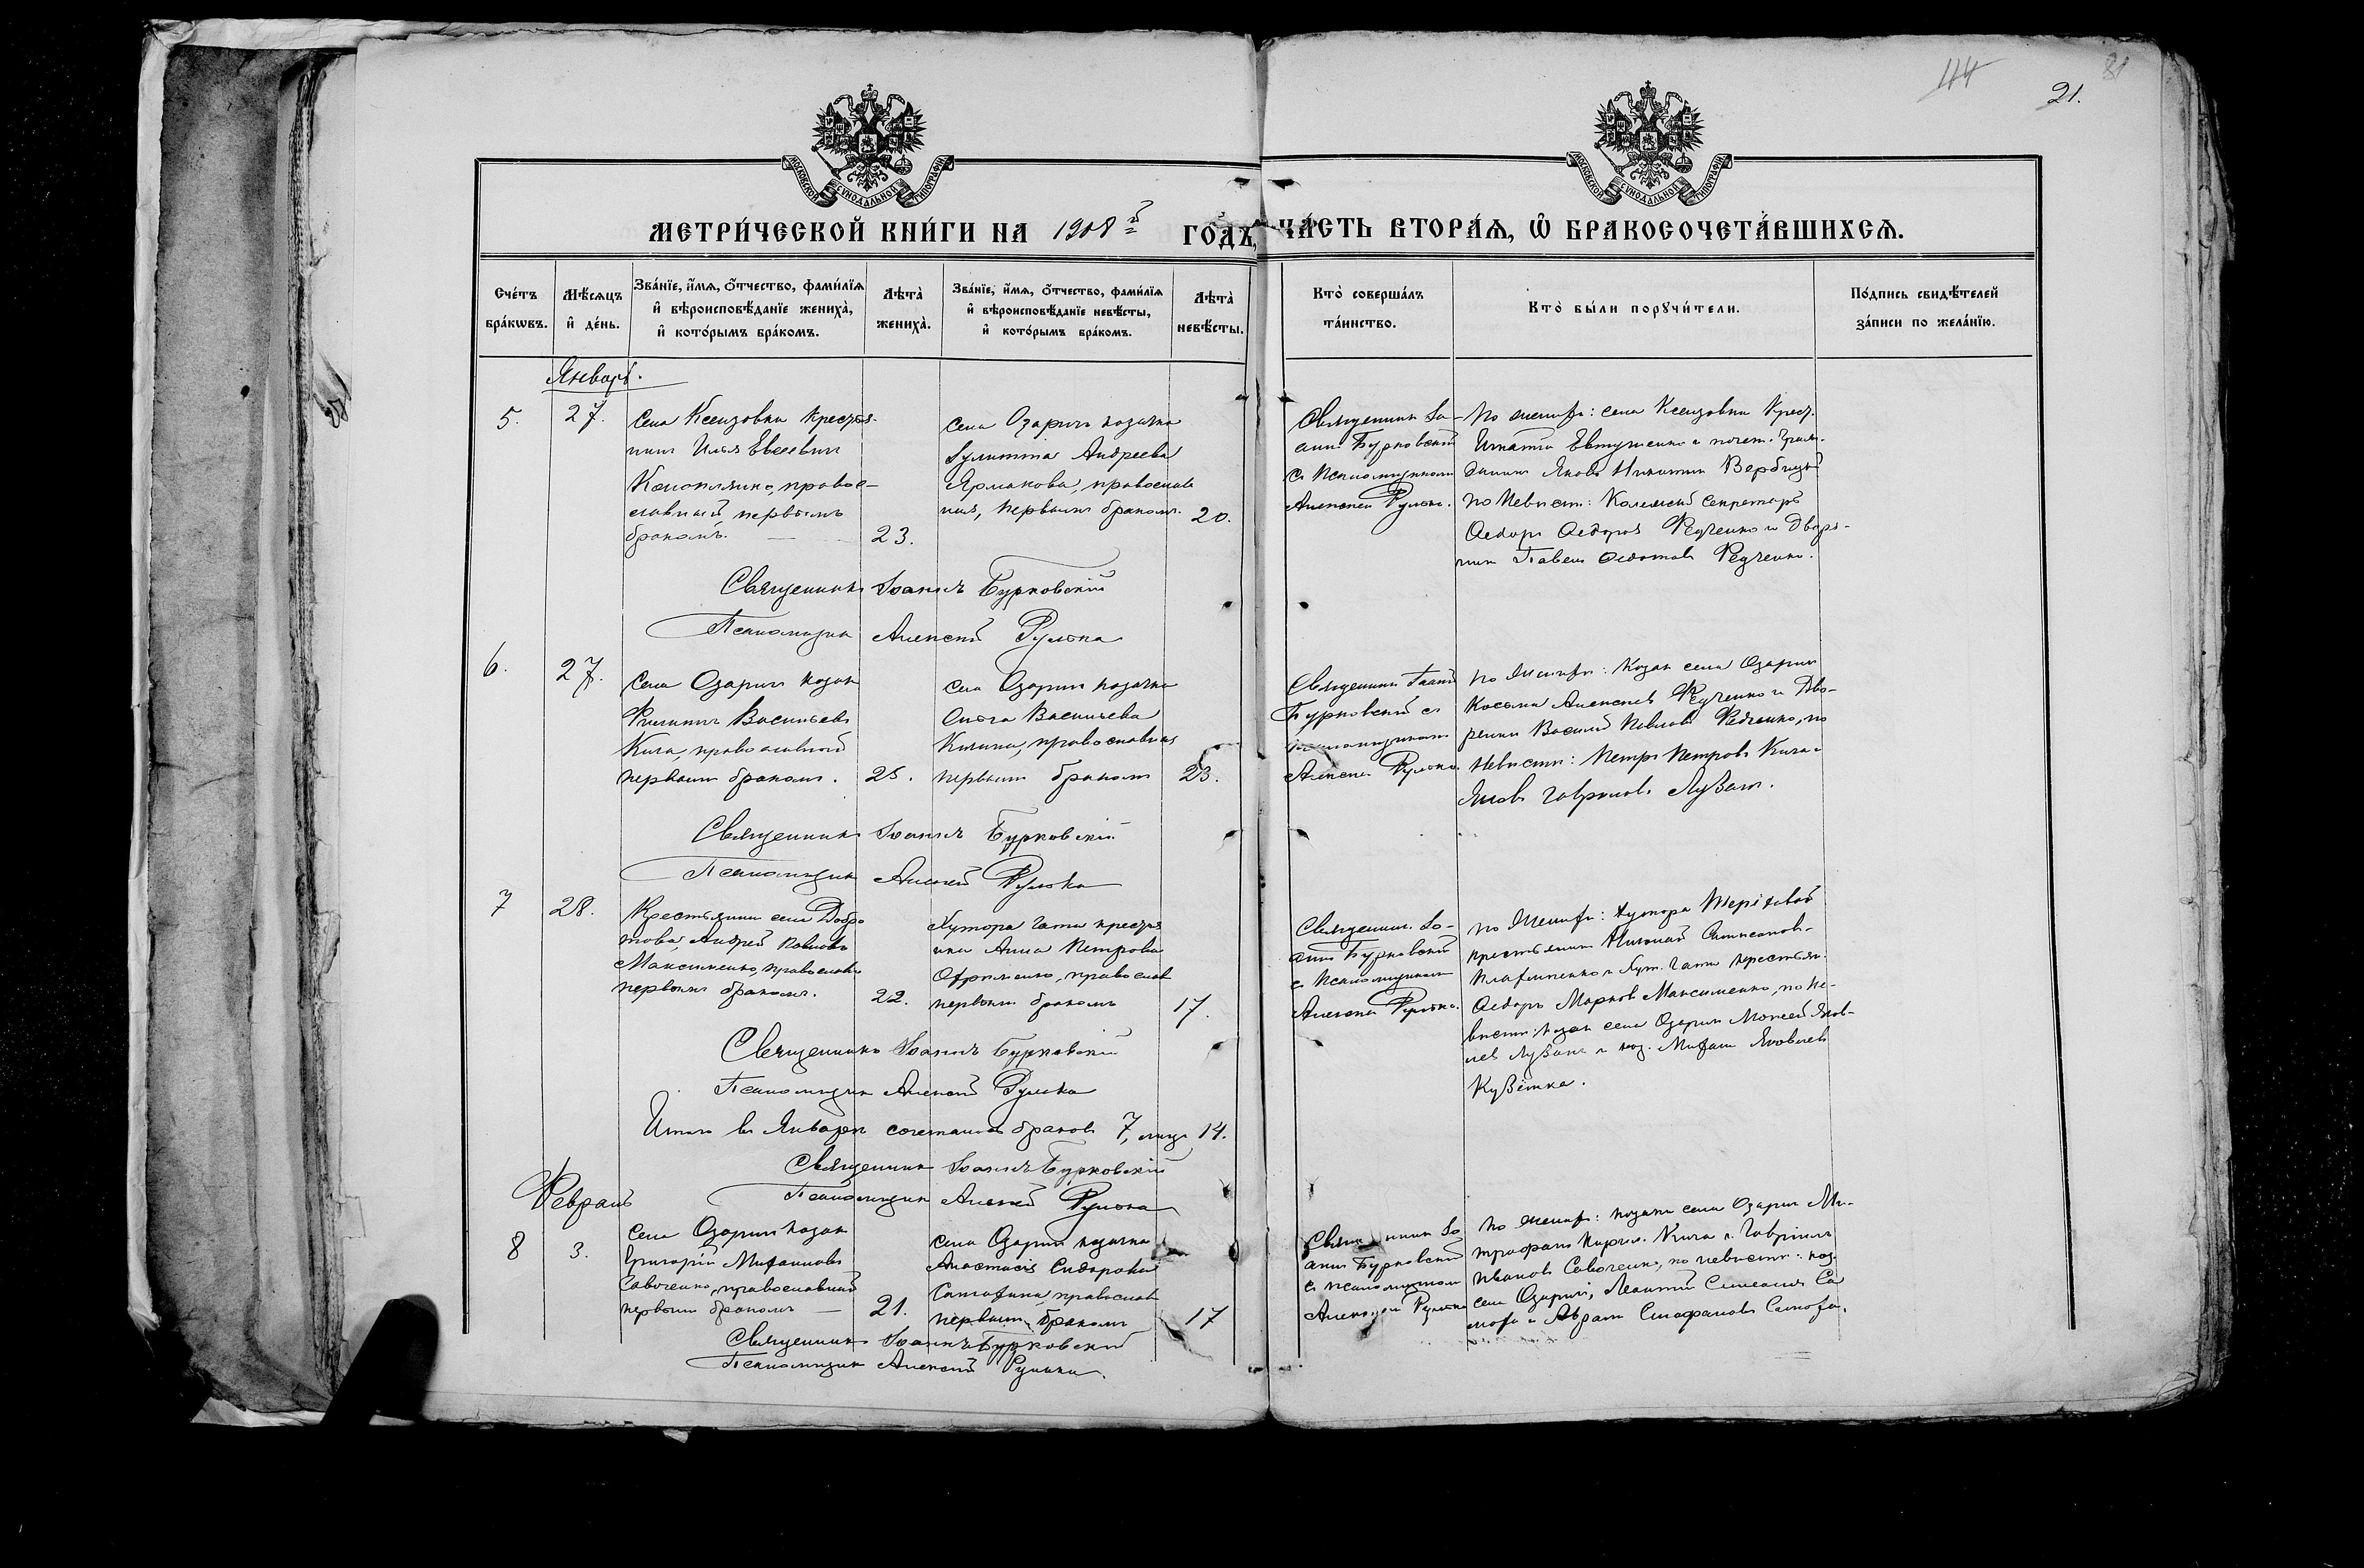 114
81
21.
МОСКОВСКОЙ СѴНОДАЛЬНОЙ ТИПОГРАФІИ
МОСКОВСКОЙ СѴНОДАЛЬНОЙ ТИПОГРАФІИ
МЕТРИ́ЧЕСКОЙ КНИ́ГИ НА 1908й ГО́ДЪ, ЧА́СТЬ ВТОРА́Ѧ, Ѡ҆ БРАКОСОЧЕТА́ВШИХСѦ.
Сче́тъ бра́кѡвъ.
Мѣ́сѧцъ и҆ де́нь.
Зва́нїе, и҆́мѧ, о҆́тчество, фами́лїѧ и҆ вѣроисповѣ́данїе жениха̀, и҆ кото́рымъ бра́комъ.
Лѣта̀ жениха̀.
Зва́нїе, и҆́мѧ, о҆́тчество, фами́лїѧ и҆ вѣроисповѣ́данїе невѣ́сты, и҆ кото́рымъ бра́комъ.
Лѣта̀ невѣ́сты.
Кто̀ соверша́лъ та́инство.
Кто̀ бы́ли порꙋчи́тели.
По́дпись свидѣ́телей за́писи по жела́нїю.
Январь.
5.
27.
Села Ксензовки крестья-
нинъ Илья Евсеевъ
Конопляно, правос-
лавный, первымъ
бракомъ.
23.
села Озаричъ козачка
Іулитта Андреева
Ярмакова, православ
ная, первымъ бракомъ.
20.
Священникъ Іо-
аннъ Бурковскій
съ псаломщикомъ
Алексѣемъ Рулька.
По женихѣ: села Ксензовки крест.
Игнатій Евтушенко и почет. граж-
данинъ Яковъ Никитинъ Вербицкій
по невѣстѣ: Коллежскій Секретарь
Ѳедоръ Ѳедоровъ Редченко и Дворя-
нинъ Павелъ Ѳедотовъ Редченко.
Священникъ Іоаннъ Бурковскій
Псаломщикъ Алексѣй Рулька
6.
27.
Села Озаричъ козакъ
Филиппъ Васильевъ
Кича, православный
первымъ бракомъ.
25.
села Озаричъ козачка
Ольга Васильева
Кичина, православная
первымъ бракомъ
23.
Священникъ Іоаннъ
Бурковскій съ
псаломщикомъ
Алексѣемъ Рулька.
по женихѣ: Козакъ села Озаричъ
Косьма Алексѣевъ Редченко и Дво-
рянинъ Василій Павловъ Редченко, по
невѣстѣ: Петръ Петровъ Кича и
Яковъ Гавриловъ
Священникъ Іоаннъ Бурковскій
Псаломщикъ Алексѣй Рулька
7
28.
Крестьянинъ села Добро
това Андрей Павловъ
Максименко, православн
первымъ бракомъ.
22.
Хутора Гати крестья
нка Анна Петрова
православ
первымъ бракомъ
17.
Священникъ Іо-
аннъ Бурковскій
съ псаломщикомъ
Алексѣемъ Рулька.
по женихѣ: хутора
крестьянинъ Николай
и хут. Гати крестьян.
Ѳедоръ Марковъ Максименко, по не-
вѣстѣ: козакъ села Озаричъ Моисей Яков-
левъ и коз. Михаилъ Яковлевъ
Священникъ Іоаннъ Бурковскій
Псаломщикъ Алексѣй Рулька
Итого въ Январѣ сочеталось браковъ 7, лицъ 14.
Священникъ Іоаннъ Бурковскій
Псаломщикъ Алексѣй Рулька
Февраль
8
3.
Села Озаричъ козакъ
Григорій Михаиловъ
Савоченко, православный
первымъ бракомъ
21.
села Озаричъ козачка
Анастасія Сидорова
православ
первымъ бракомъ
17
Священникъ Іо
аннъ Бурковскій
съ псаломщикомъ
Алексѣемъ Рулька
по женихѣ: козаки села Озаричъ Ми-
трофанъ Кича и Гавріилъ
Ивановъ Савоченко, по невѣстѣ: коз.
села Озаричъ, Леонтій Симеоновъ Са
моха и Абрамъ Стефановъ Самоха.
Священникъ Іоаннъ Бурковскій
Псаломщикъ Алексѣй Рулька.